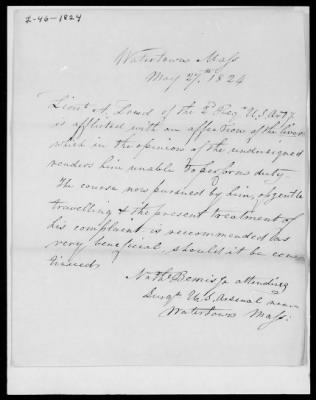 L-46-1824
Watertown Mass
May 27th 1824
Lieut A. Lowd of the 2d Regt U.S. Arty.
is afflicted with an affection of the liver
which in the opinion of the undersigned
renders him unable to perform duty.
The course now pursued by him, of gentle
travelling & the present treatment of
his complaint, is recommended as
very beneficial, should it be con-
tinued.
Nathl Bemis Jr attending
Surgn U.S. Arsenal near
Watertown Mass: